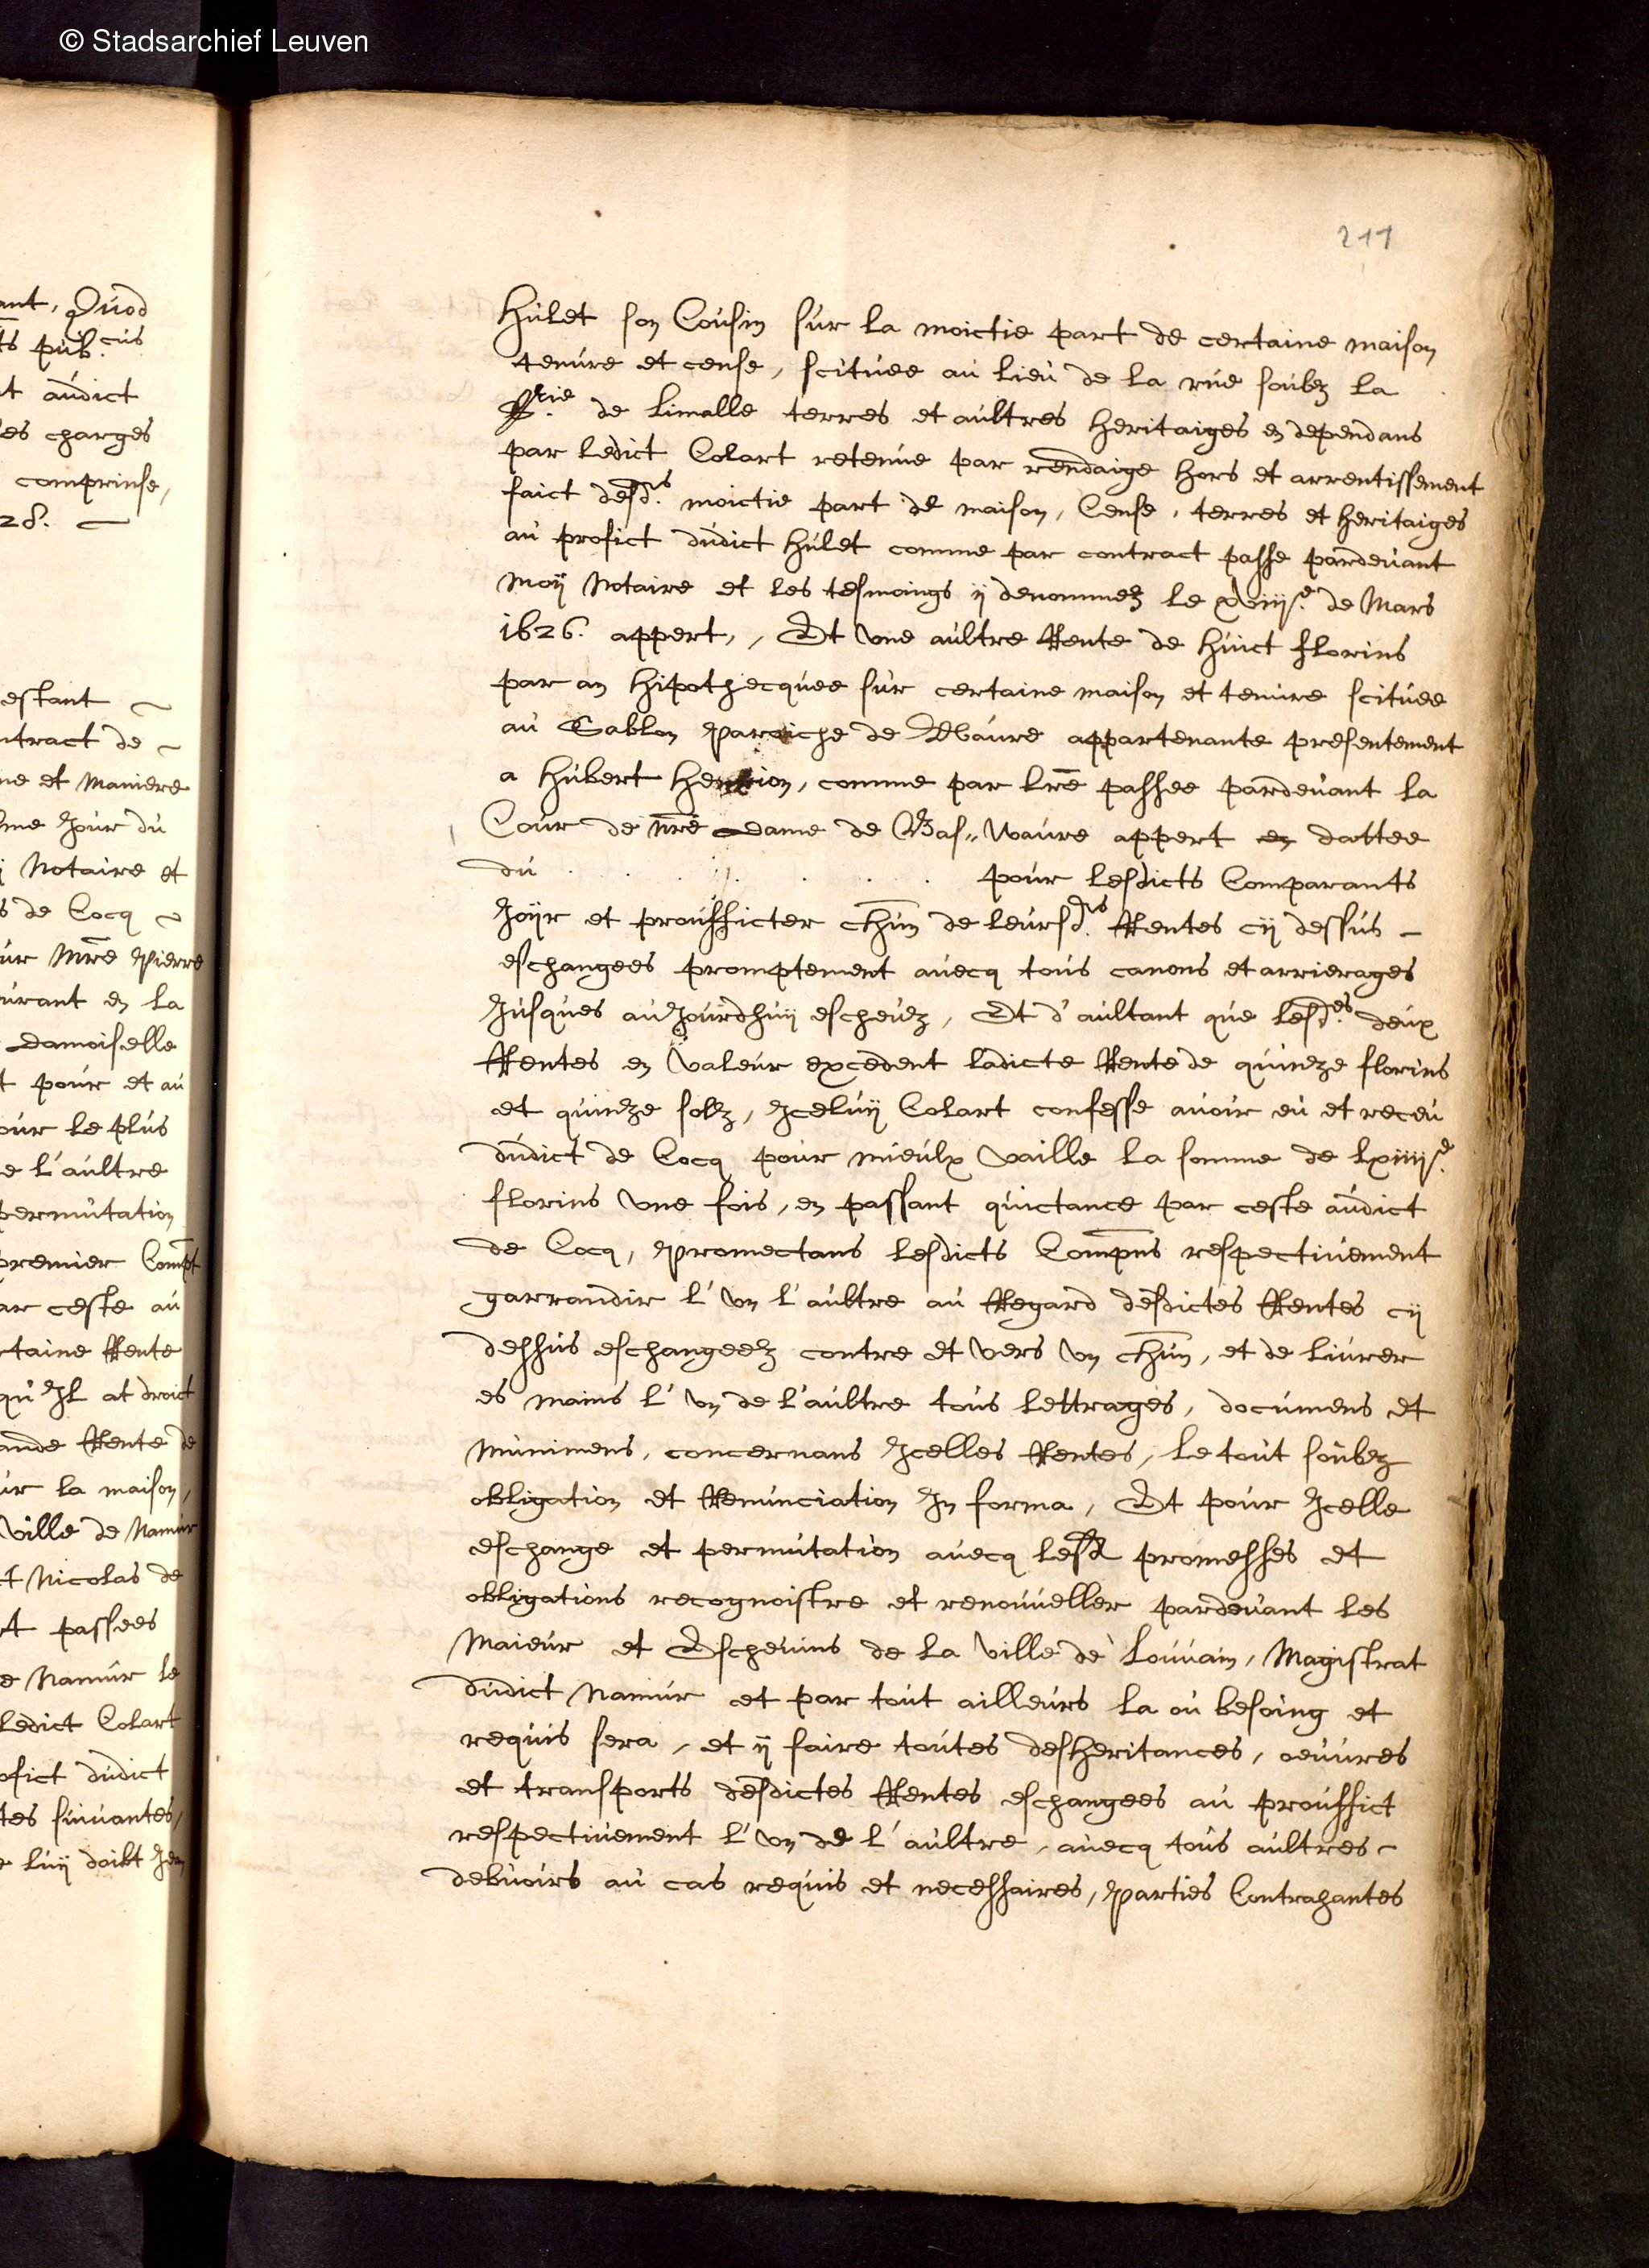 © Stadsarchief Leuven
211
ant, Quod
ts pub.cus
t audict
es charges
comprinse,
28.
estant
ntract de
ne et maniere
me Jour du
Notaire et
s de Cocq
ur Mre Pierre
urant en la
damoiselle
t pour et au
our le plus
e l'aultre
permutation
premier Compt
ar ceste au
rtaine Rente
qu'Il at droict
ande Rente de
ur la maison,
ville de Namur
t Nicolas de
rt passees
e Namur le
ledict Colart
ofict dudict
tes suivantes,
e luy doibt
Hulet son Cousin sur la moictie part de certaine maison
tenure et cense, scituee au lieu de la rue soubz la
Srie de Limalle terres et aultres heritaiges en dependans
par ledict Colart retenue par rendaige hors et arrentissement
faict desd.es moictie part de maison, Cense, terres et heritaiges
au profict dudict Hulet comme par contract passe pardevant
moÿ Notaire et les tesmoings ÿ denommez le xviije de Mars
1626. appert,, Et une aultre Rente de huict florins
par an hipothecquee sur certaine maison et tenure scituee
au Sablon Paroiche de Wavre appartenante presentement
a Hubert Henrion, comme par lre passee pardevant la
Cour de nre Dame de Bas,, Wavre appert en dattee
du . . . . . . pour lesdicts Comparants
Joÿr et proufficter chun de leursd.es Rentes cÿ dessus
eschangees promptement avecq tous canons et arrierages
Jusques auJourdhuÿ escheuz, Et d'aultant que lesd.es deux
Rentes en valeur excedent ladicte Rente de quinze florins
et quinze solz, Iceluÿ Colart confesse avoir eu et receu
dudict de Cocq pour mieulx vaille la somme de lxiiije
florins une fois, en passant quictance par ceste audict
de Cocq, Promectans lesdicts Compns respectivement
garrandir l'un l'aultre au Regard desdictes Rentes cÿ
dessus eschangeez contre et vers un chun, et de livrer
es mains l'un de l'aultre tous lettrages, documens et
munimens, concernans Icelles Rentes, le tout soubz
obligation et Renunciation In forma, Et pour Icelle
eschange et permutation avecq lesd promesses et
obligations recognoistre et renouveller pardevant les
Maieur et Eschevins de la ville de Louvain, Magistrat
dudict Namur et par tout ailleurs la ou besoing et
requis sera, et ÿ faire toutes desheritances, oeuvres
et transports desdictes Rentes eschangees au prouffict
respectivement l'un de l'aultre, avecq tous aultres
debvoirs au cas requis et necessaires, Parties Contrahantes